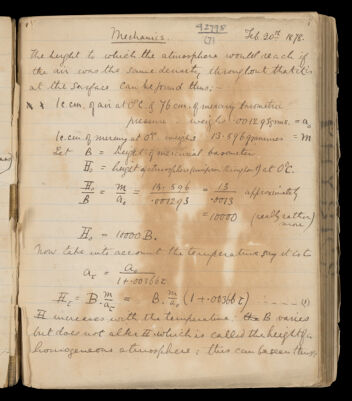 42798
(7)
Mechanics. Feb 20th 1878.
The height to which the atmosphere would reach if
the air was the same density throughout that it is
at the surface can be found thus:-
x x 1 c.cm. of air at 0°C. & 76 cm. of mercury barometric
pressure weighs .001293 gms. = a₀
1 c.cm of mercury at 0° weighs 13.596 grammes = m
Let B = height of mercurial barometer
H₀ = height of atmosphere at 0°C.
H₀/B = m/a₀ = 13.596/.001293 = 13/.0013 approximately
= 10000 (really rather more)
H₀ = 10000 B.
Now take into account the temperature say it is t
a_t = a₀/(1+.00366t)
H_t = B.m/a_t = B.m/a₀ (1+.00366t) (1)
H increases with the temperature: B varies
but does not alter H which is called the height of a
homogeneous atmosphere: this can be seen thus.